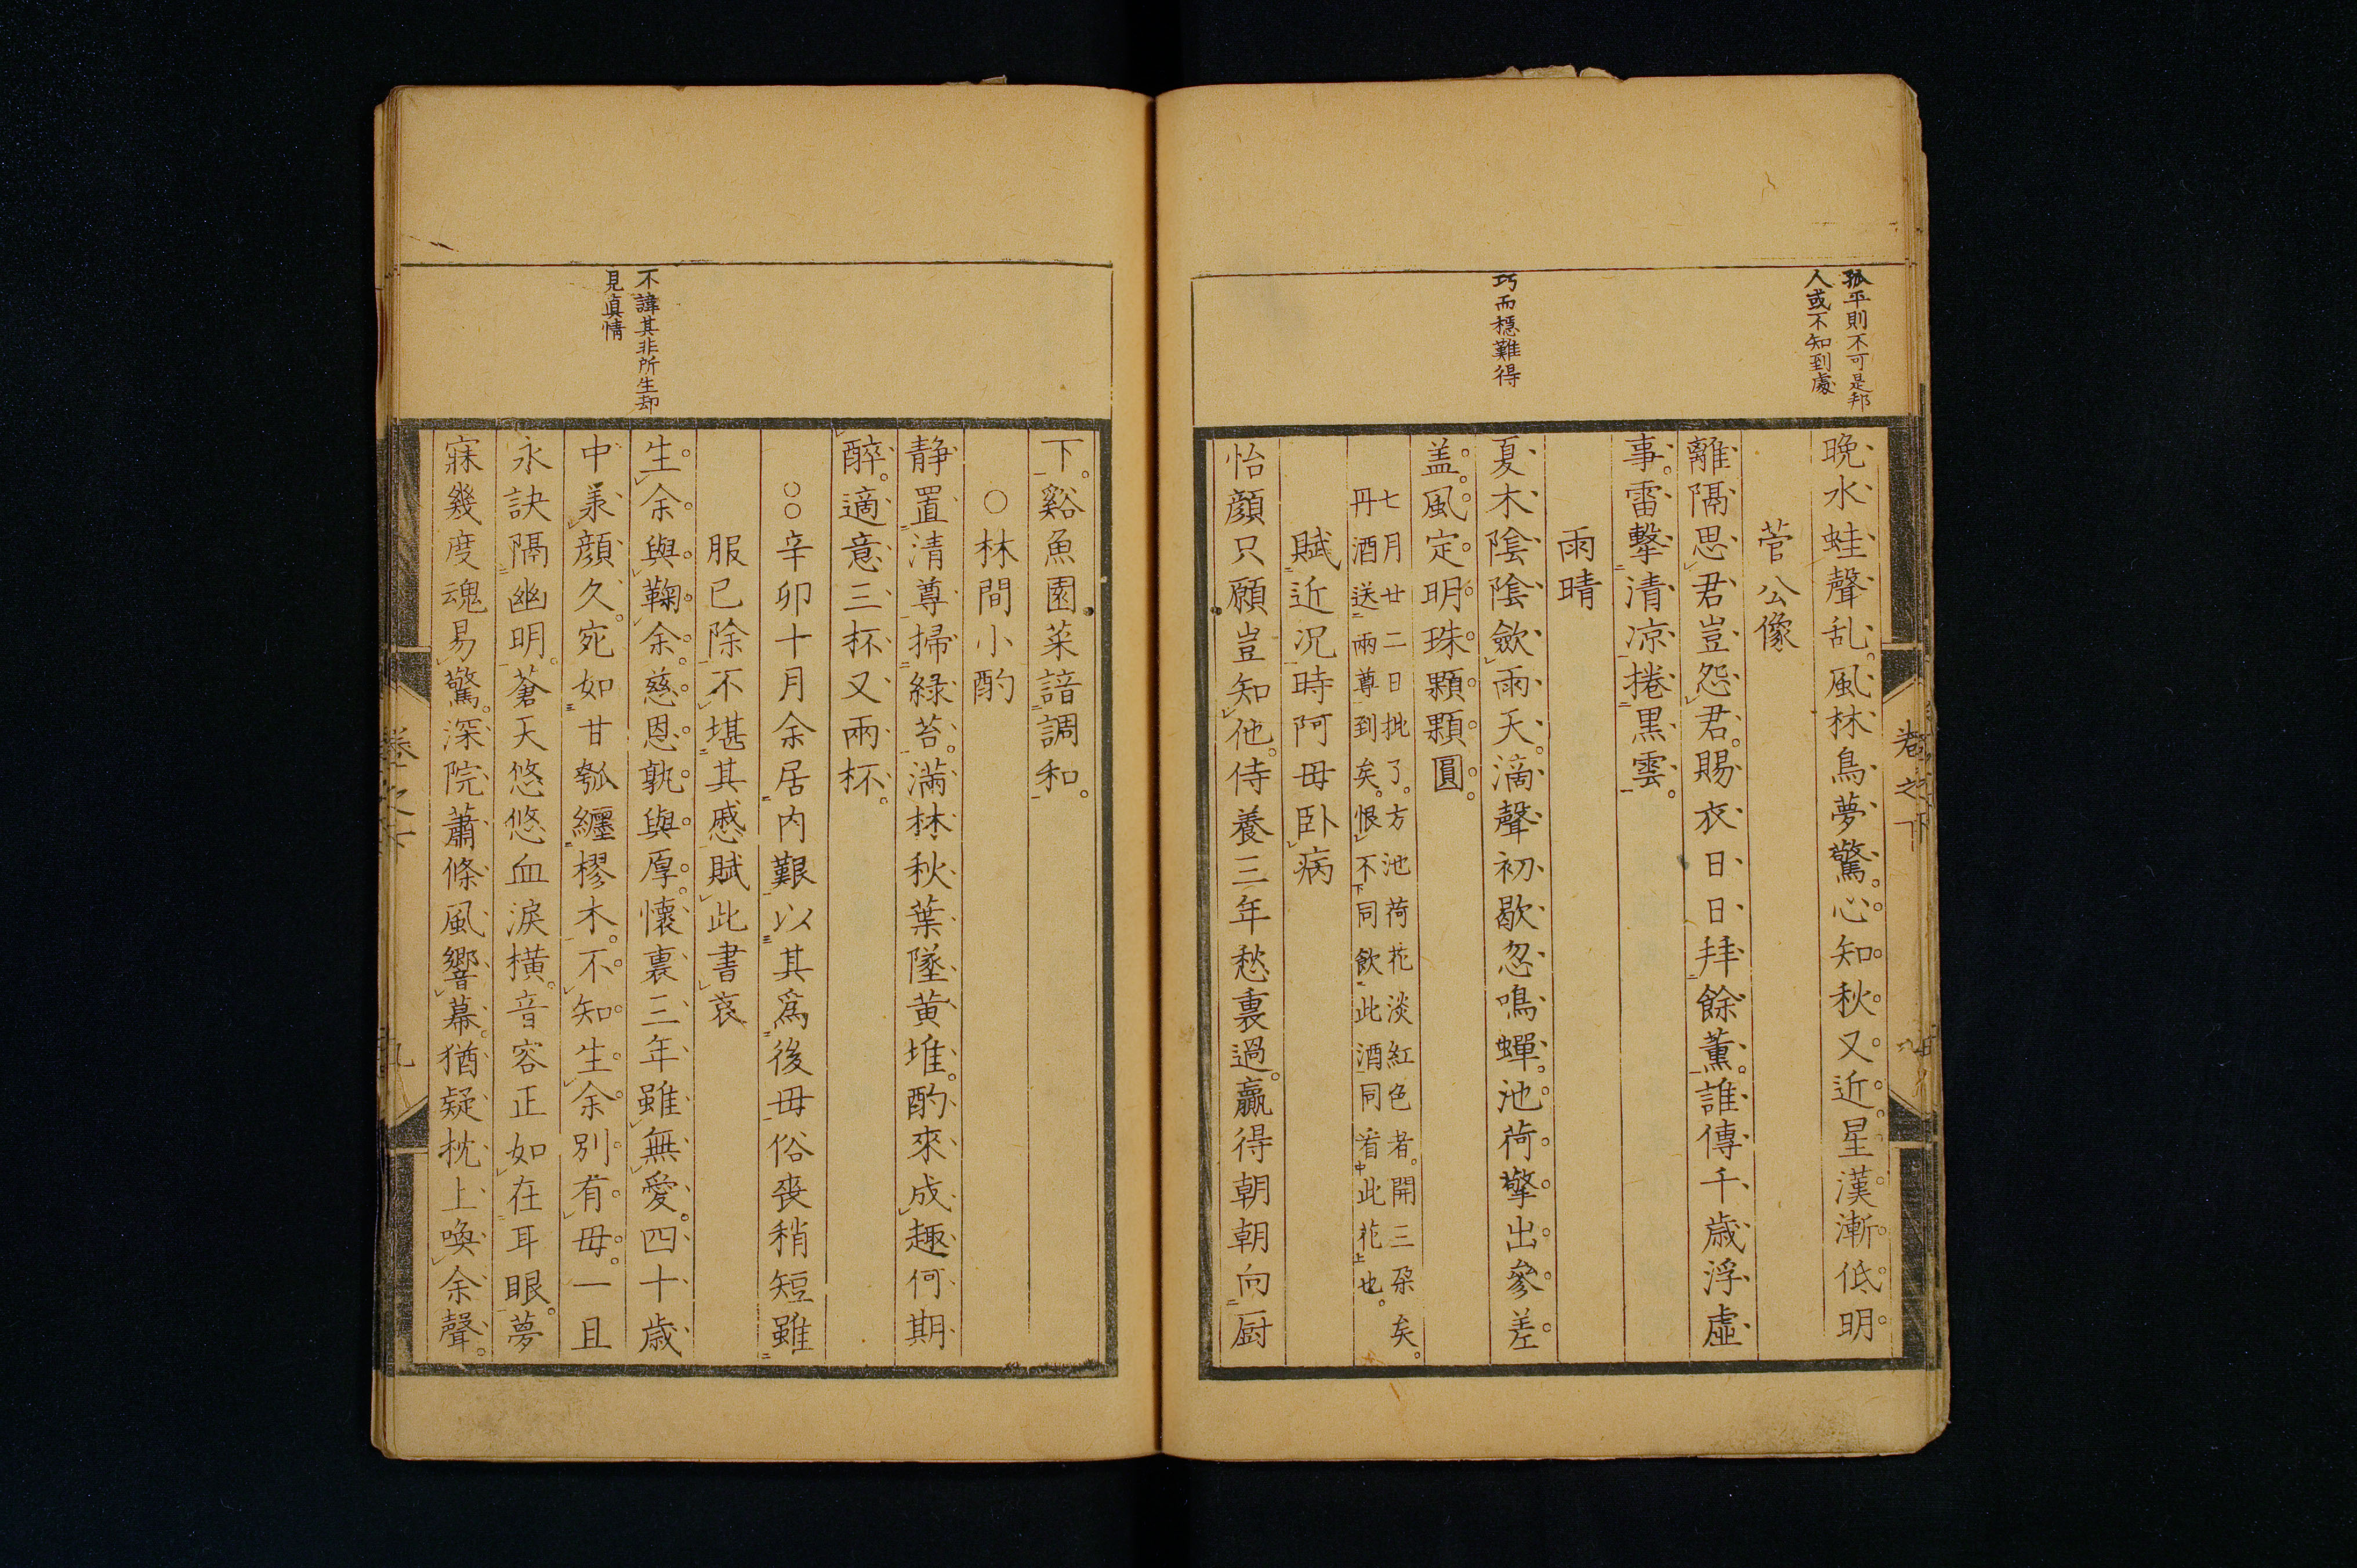 孤平則不可是邦
人或不知到處
巧而穏難得
晩水蛙聲乱。風林鳥夢驚。心知秋又近。星漢漸低明。
菅公像
離隔思君豈怨君。賜衣日日拝餘薫。誰傳千歳浮虛
事。雷撃清凉捲黒雲。
雨晴
夏木陰陰斂雨天。滴聲初歇忽鳴蟬。池荷擎出參差
盖。風定明珠顆顆圓。
七月廿二日批了。方池荷花淡紅色者。開三朶矣。
丹酒送兩尊到矣。恨不同飲此酒同看此花也。
賦近況時阿毋臥病
怡顔只願豈知他。侍養三年愁裏過。贏得朝朝向厨
卷之下
下。谿魚園菜諳調和。
不諱其非所生却
見眞情
○林間小酌
静置清尊掃緑苔。滿林秋葉墜黄堆。酌來成趣何期
醉。適意三杯又兩杯。
○○辛卯十月余居内艱以其爲後毋俗喪稍短雖
服已除不堪其慼賦此書哀
生余與鞠余。慈恩孰與厚。懷裏三年雖無愛。四十歳
中羕顔久。宛如甘瓠纏樛木。不知生余別有毋。一旦
永訣隔幽明。蒼天悠悠血淚橫。音容正如在耳眼。夢
寐幾度魂易驚。深院蕭條風響幕。猶疑枕上喚余聲。